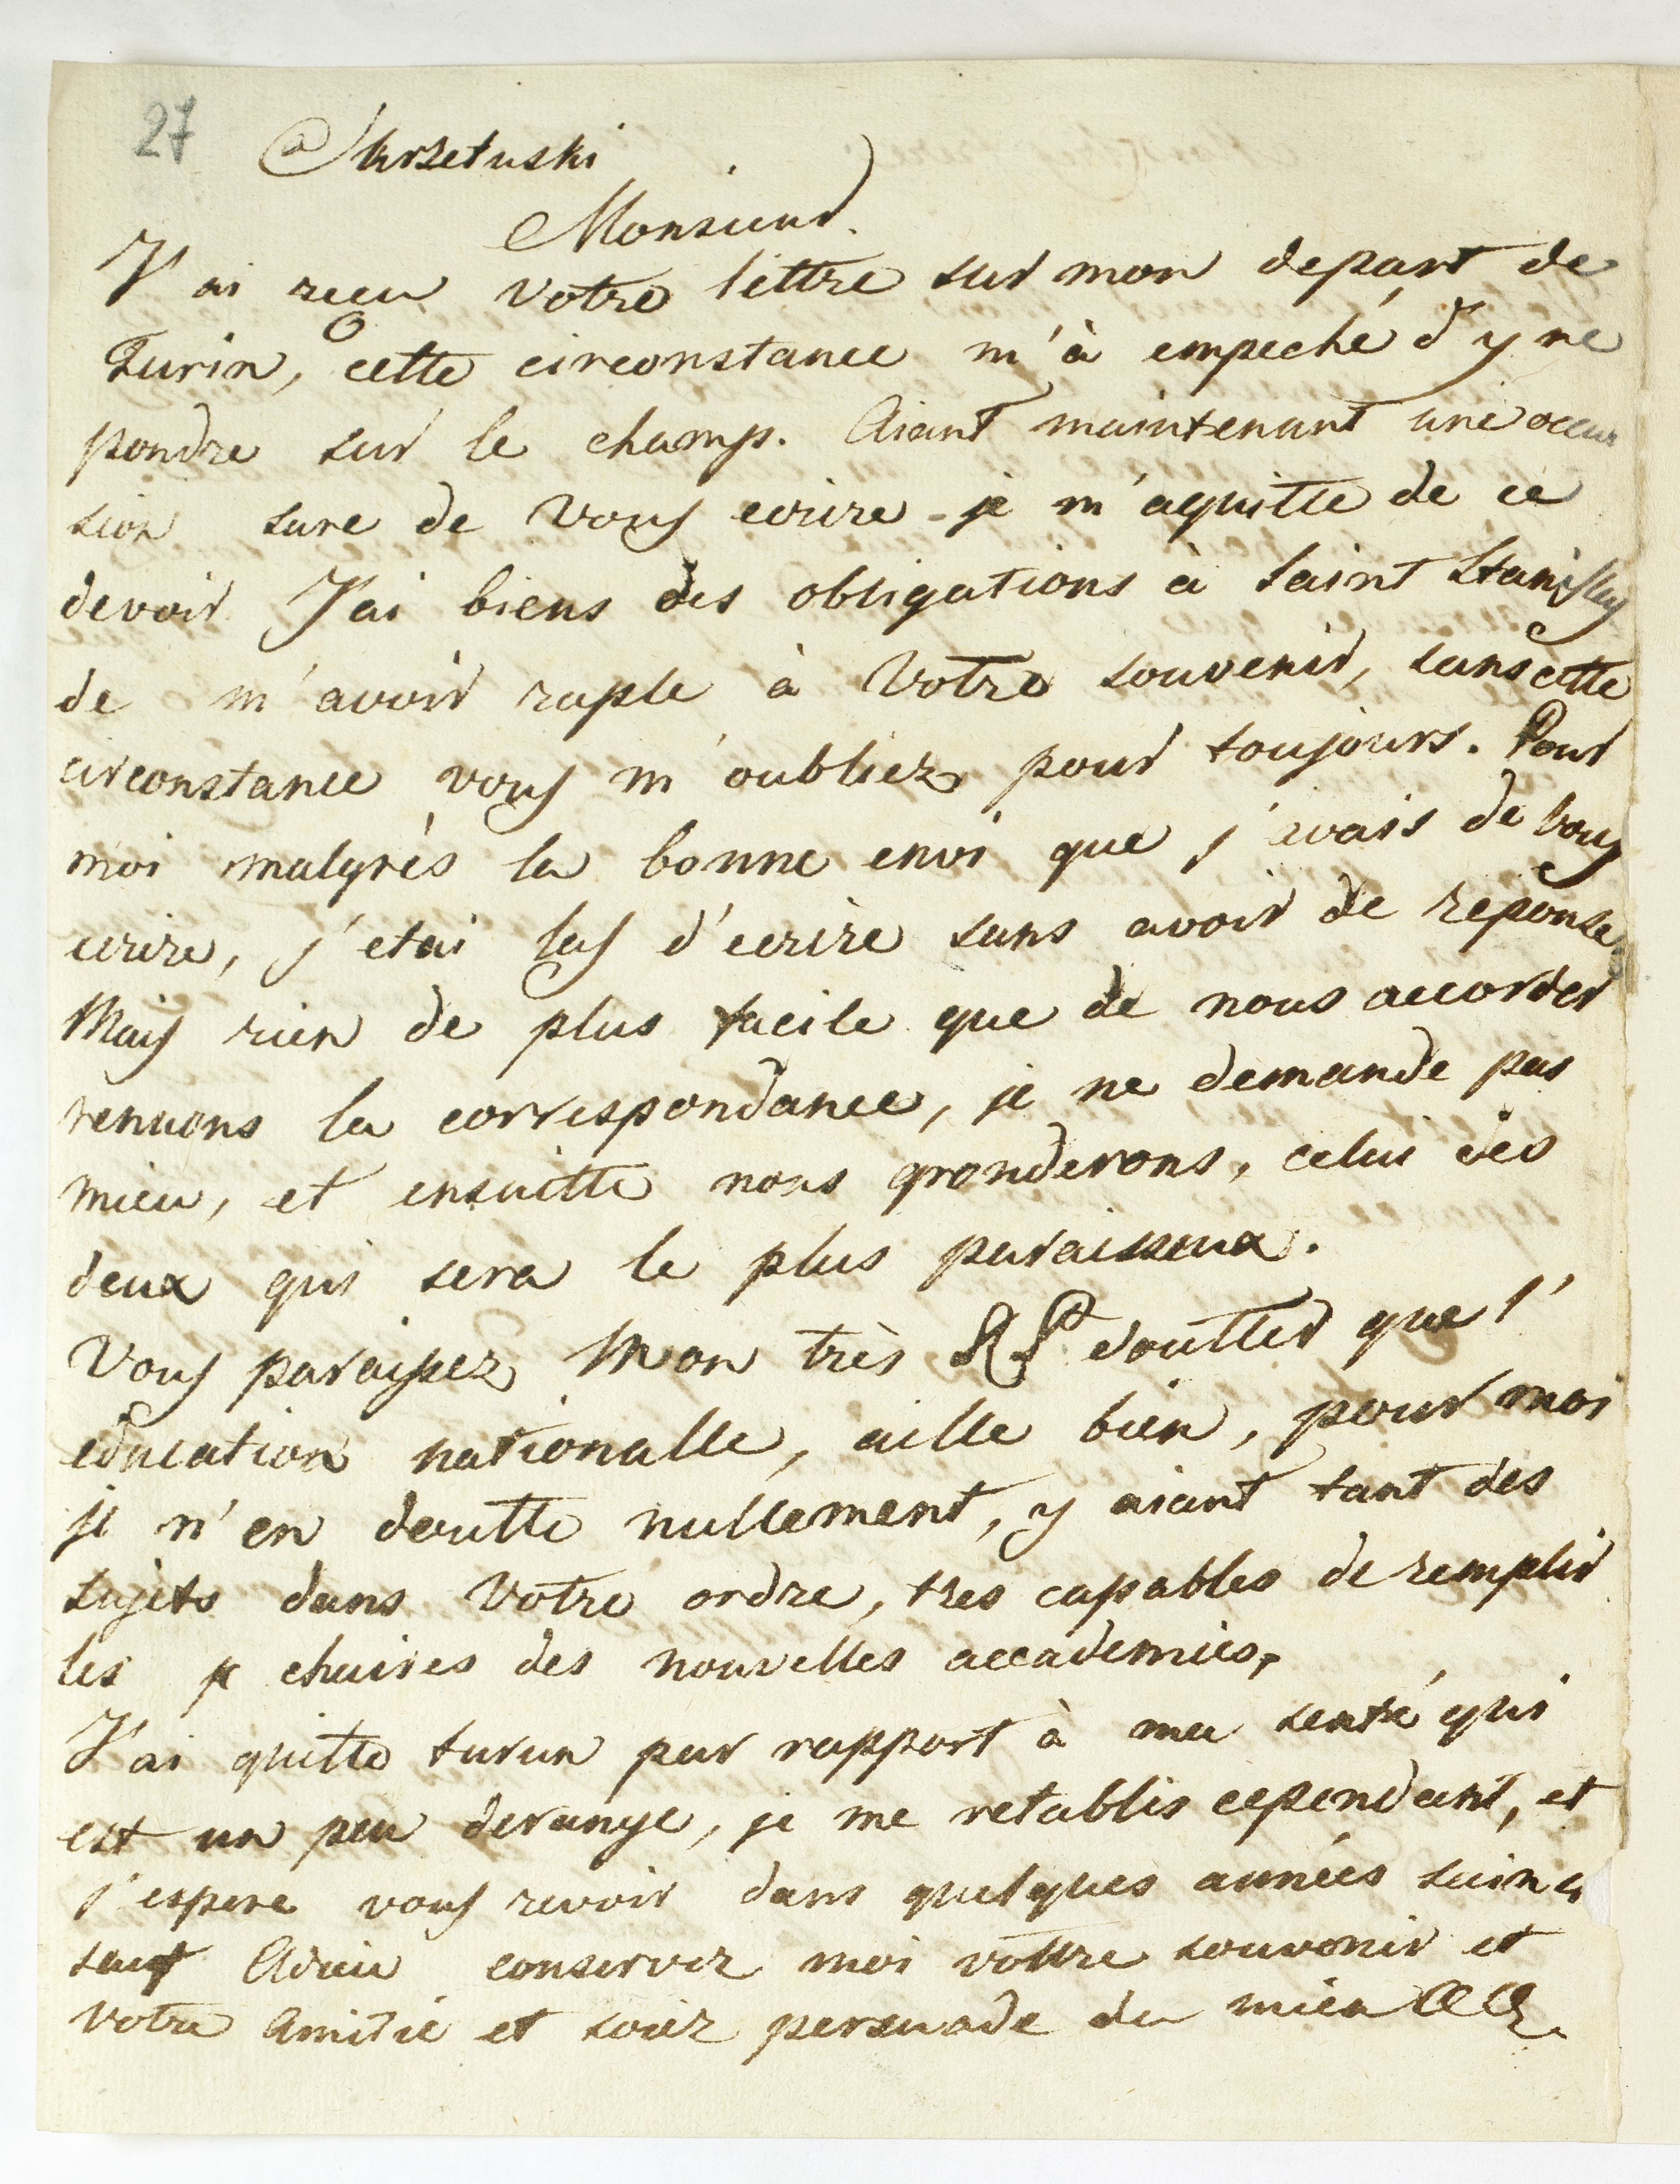 27
a Skrzetuski
Monsieur.
J'ai recu votre lettre sur mon depart de
Turin, cette circonstance m'à empeché d'y re
pondre sur le champ. Aiant maintenant une occa
sion sure de vous ecrire - je m'aquitte de ce
devoir. J'ai biens des obligations à saint Stanislas
de m'avoir raple à votre souvenir, sans cette
circonstance vous m'oubliez pour toujours. Pour
moi malgrés la bonne envi que j'avais de vous
ecrire, j'etai las d'ecrire sans avoir de reponse.
Mais rien de plus facile que de nous accorder
renuons la correspondance, je ne demande pas
mieu, et ensuitte nous gronderons, celui des
deux qui sera le plus paraisseux.
Vous paraissez Mon très doutter que l'
education nationalle, aille bien, pour moi
je n'en doutte nullement, y aiant tant des
sujets dans votre ordre, tres capables de remplir
les chaires des nouvelles accademies,
J'ai quitte turin par rapport à ma senté qui
est un peu derange, je me retablis cependant, et
j'espere vous revoir dans quelques années sain e
sauf Adieu conservez moi vottre souvenir et
votre Amitié et soiez persuade du mien